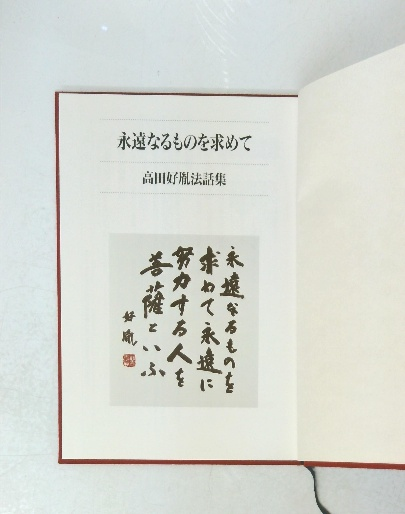 永遠なるものを求めて
高田好胤法話集
永遠なるものを
求めて永遠に
努力する人を
菩薩といふ
好胤